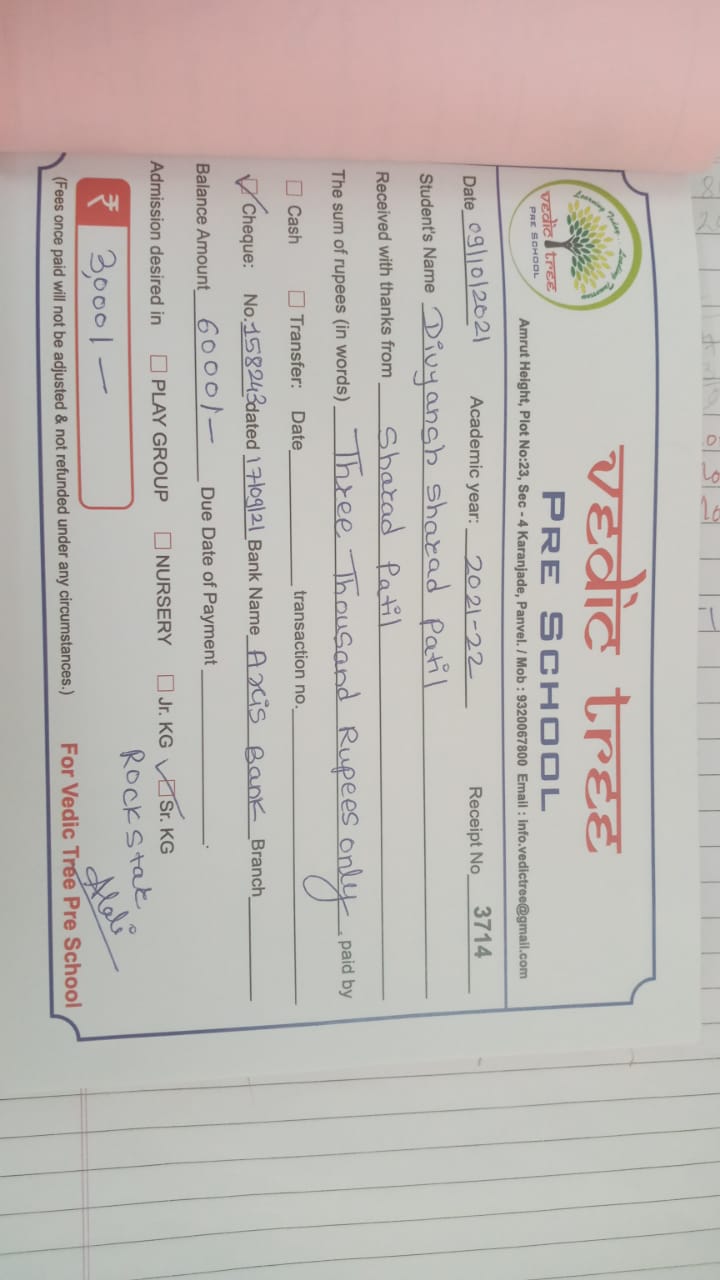 vedic tree
PRE SCHOOL
vedic tree
PRE SCHOOL
Amrut Height, Plot No:23, Sec - 4 Karanjade, Panvel. / Mob : 9320067800 Email : info.vedictree@gmail.com
Date 09/10/2021 Academic year: 2021-22 Receipt No 3714
Student's Name Divyansh Sharad Patil
Received with thanks from Sharad Patil
The sum of rupees (in words) Three Thousand Rupees only paid by
Cash Transfer: Date transaction no.
Cheque: No. 158243 dated 17/09/21 Bank Name Axis Bank Branch
Balance Amount 6000/- Due Date of Payment .
Admission desired in PLAY GROUP NURSERY Jr. KG Sr. KG
Rockstar
₹ 3,000/-
(Fees once paid will not be adjusted & not refunded under any circumstances.) For Vedic Tree Pre School